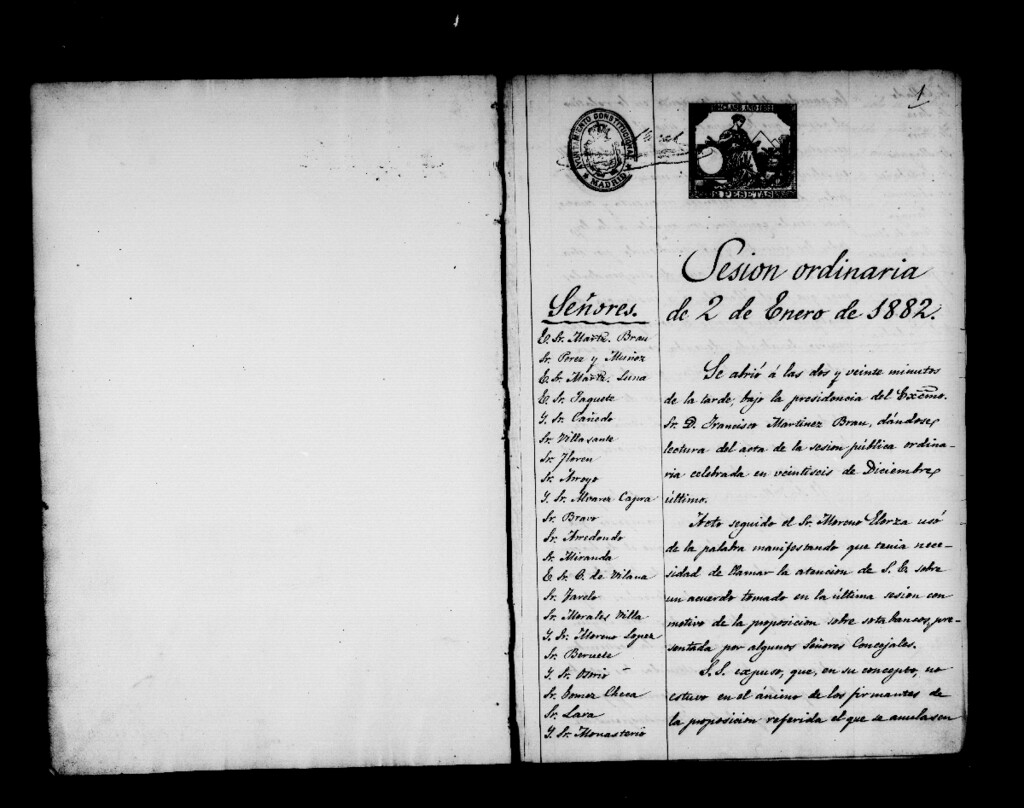 1
AYUNTAMIENTO CONSTITUCIONAL
MADRID
CLASE AÑO 1882
PESETAS
Sesion ordinaria
de 2 de Enero de 1882.
Señores.
E. Sr. Martz. Brau
Sr. Perez y Muñoz
E. Sr. Martz. Luna
E. Sr.
Y. Sr. Cañedo
Sr. Villasante
Sr. Floren
Sr. Arroyo
Y. Sr. Alvarez Capra
Sr. Bravo
Sr. Arredondo
Sr. Miranda
E. Sr. C. de Vilana
Sr. Varela
Sr. Morales Villa
Y. Sr. Moreno Lopez
Sr. Beruete
Y. Sr. Osorio
Sr. Gomez Checa
Sr. Lara
Y. Sr. Monasterio
Se abrió á las dos y veinte minutos
de la tarde, bajo la presidencia del Excmo.
Sr. D. Francisco Martinez Brau, dándose
lectura del acta de la sesion pública ordina-
ria celebrada en veintiseis de Diciembre
último.
Acto seguido el Sr. Moreno Elorza usó
de la palabra manifestando que tenia nece-
sidad de llamar la atencion de S. E. sobre
un acuerdo tomado en la última sesion con
motivo de la proposicion sobre sotabancos, pre-
sentada por algunos Señores Concejales.
S.S. expuso, que, en su concepto, no
estuvo en el ánimo de los firmantes de
la proposicion referida el que se anulasen